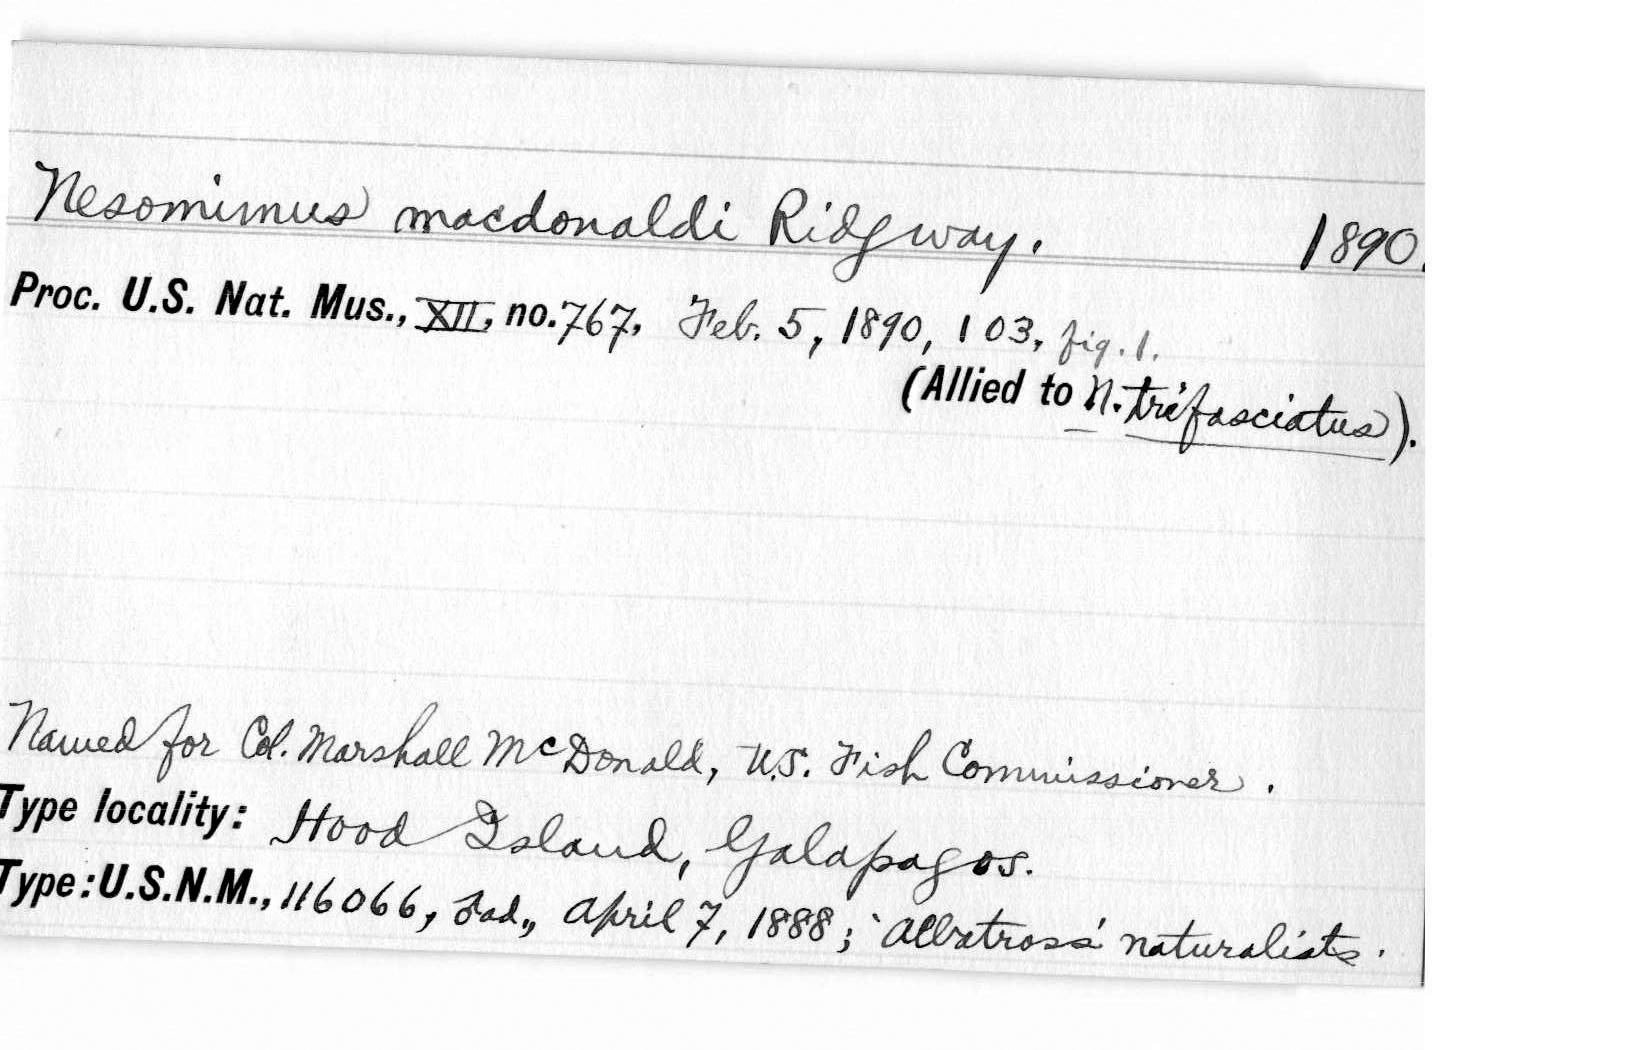 Nesomimus macdonaldi Ridgway. 1890.
Proc. U.S. Nat. Mus., XII, no. 767, Feb. 5, 1890, 103, fig. 1.
(Allied to N. trifasciatus).
Named for Col. Marshall McDonald, U.S. Fish Commissioner.
Type locality: Hood Island, Galapagos.
Type: U.S.N.M., 116066, ad., April 7, 1888; 'Albatross' naturalists.